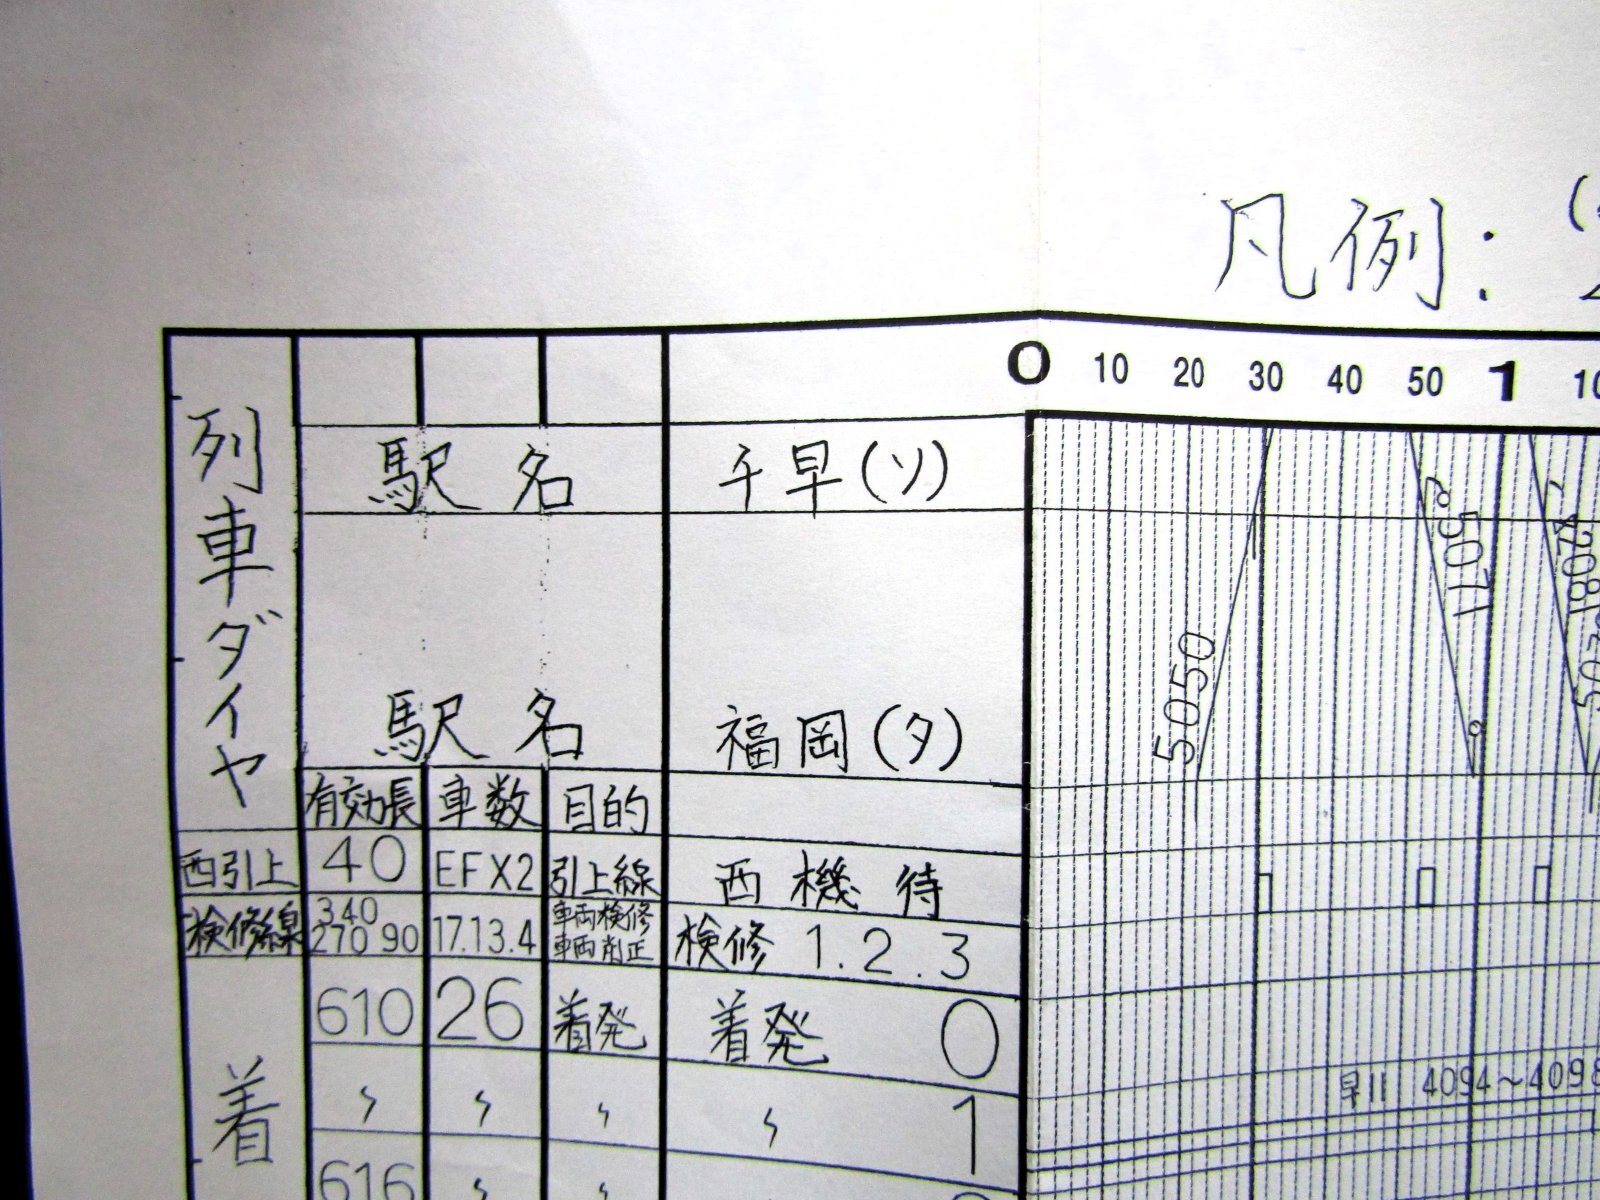 凡例:
0 10 20 30 40 50 1 10
列車ダイヤ
駅名 千早(ソ)
5071
4208
5050
駅名 福岡(タ)
有効長 車数 目的
西引上 40 EFX2 引上線 西機待
検修線 340 270 90 17.13.4 車両検修 車両削正 検修 1.2.3
着
610 26 着発 着発 0
〃 〃 〃 〃 1
早11 4094~4098
616 〃 〃